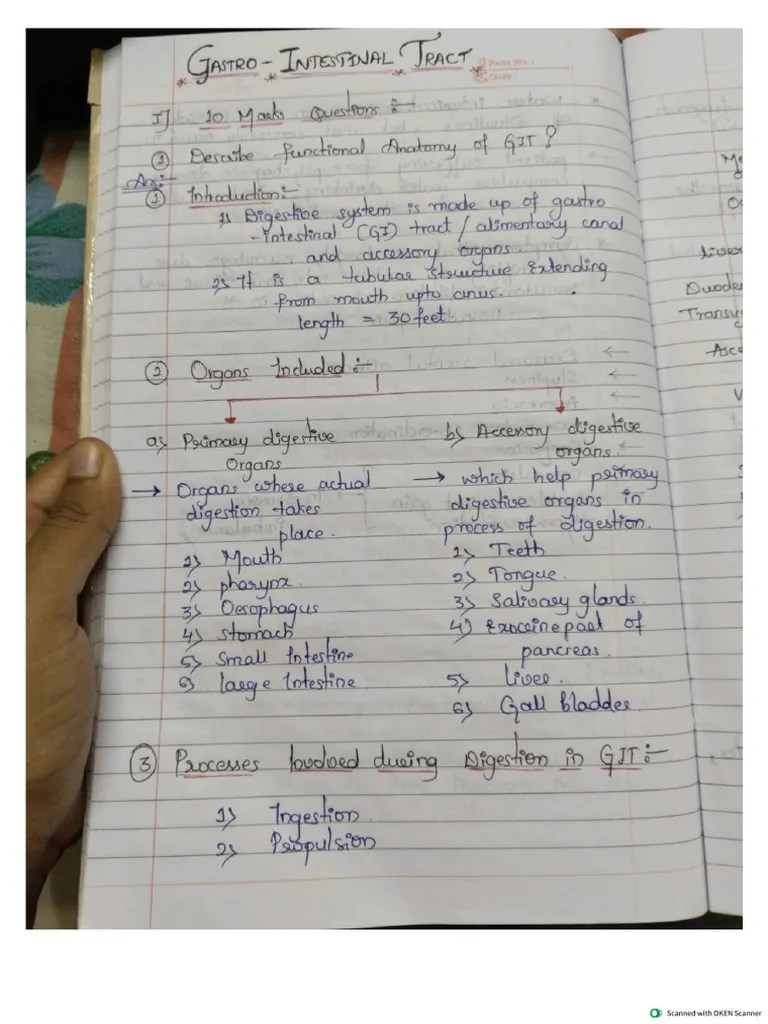 GASTRO - INTESTINAL TRACT
PAGE NO.:
DATE:
I) 10 Marks Questions :-
① Describe functional Anatomy of GIT?
Ans:-
① Introduction:-
1) Digestive system is made up of gastro
-intestinal (GI) tract / alimentary canal
and accessory organs
2) It is a tubular structure extending
from mouth upto anus.
length = 30 feet
② Organs Included :-
a) Primary digestive
Organs
→ Organs where actual
digestion takes
place.
1) Mouth
2) pharynx
3) Oesophagus
4) stomach
5) small Intestine
6) large Intestine
b) Accessory digestive
organs.
→ which help primary
digestive organs in
process of digestion.
1) Teeth
2) Tongue.
3) Salivary glands.
4) Exocrine part of
pancreas.
5) liver.
6) Gall bladder
③ Processes Involved during Digestion in GIT :-
1) Ingestion
2) Propulsion
liver
Duode
Transv
Asc
Scanned with OKEN Scanner